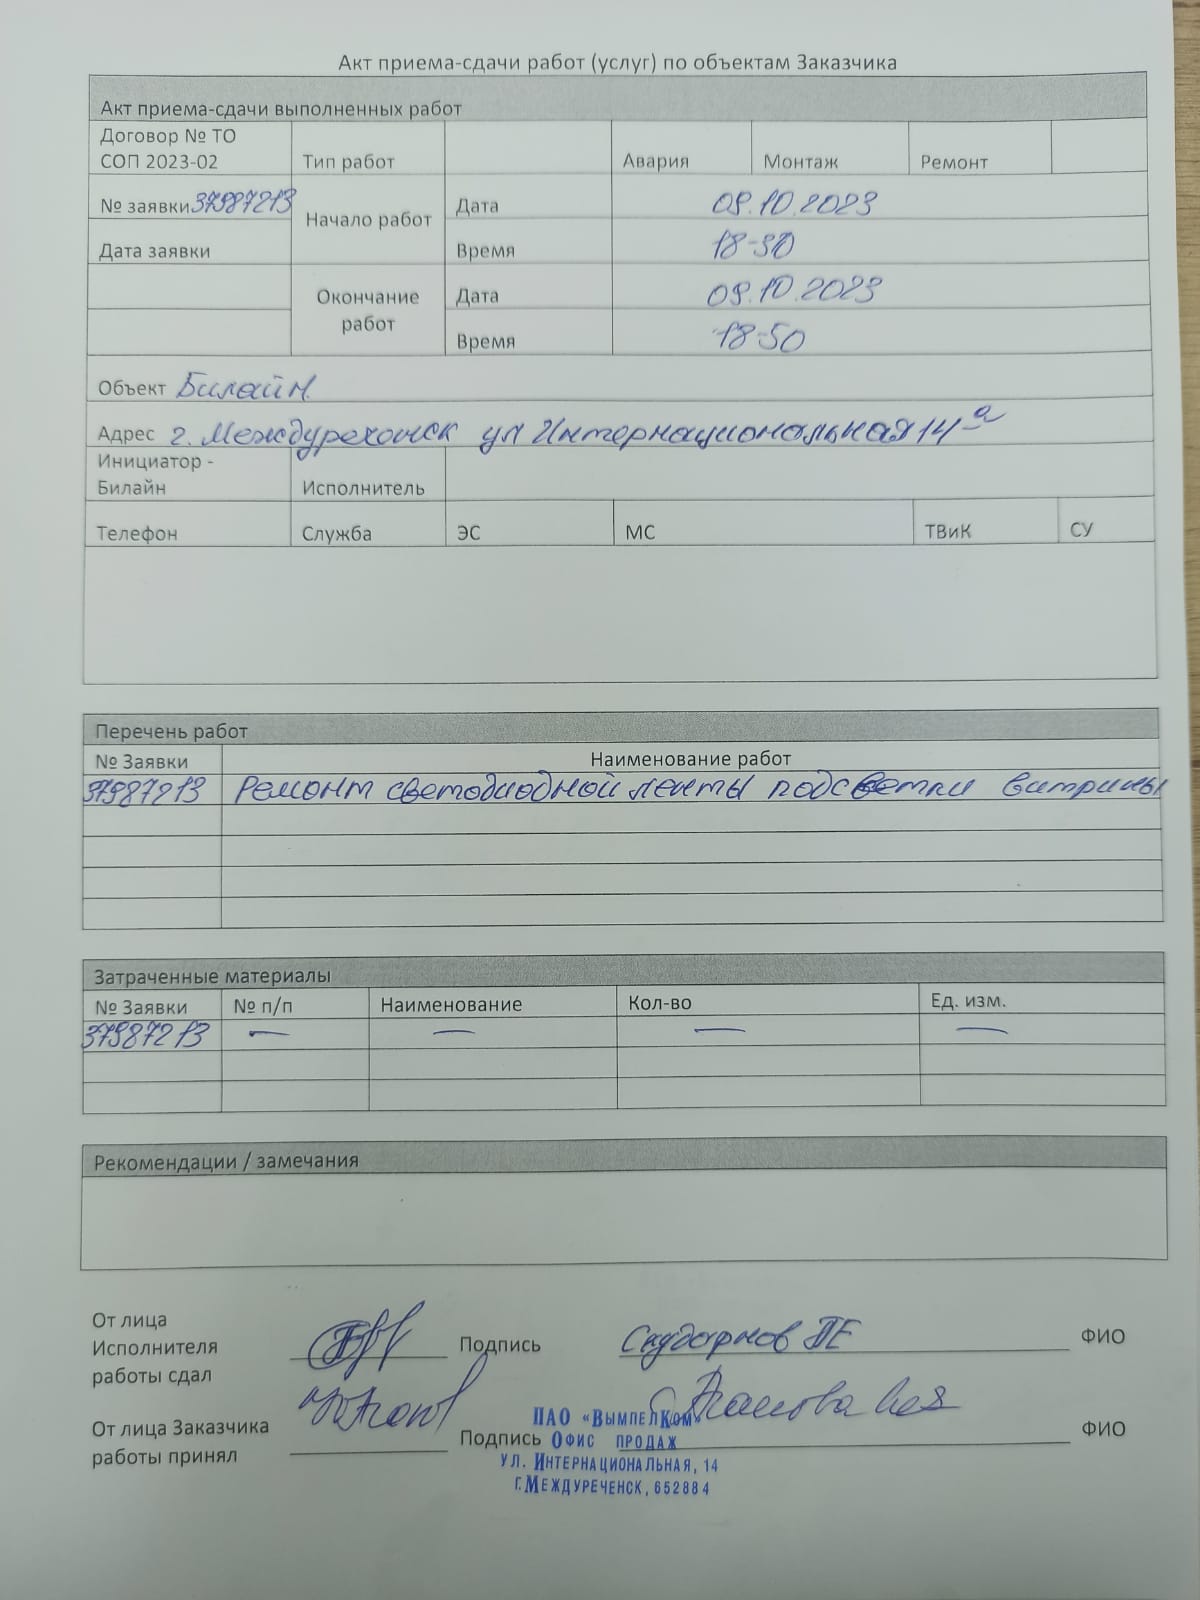 Акт приема-сдачи работ (услуг) по объектам Заказчика
Акт приема-сдачи выполненных работ
Договор № ТО
СОП 2023-02
Тип работ
Авария
Монтаж
Ремонт
№ заявки 37987213
Начало работ
Дата
09.10.2023
Дата заявки
Время
18-30
Окончание
работ
Дата
09.10.2023
Время
18-50
Объект Билайн.
Адрес г. Междуреханск ул Интернациональная 14а
Инициатор -
Билайн
Исполнитель
Телефон
Служба
ЭС
МС
ТВиК
СУ
Перечень работ
№ Заявки
Наименование работ
37987213 Ремонт светодиодной ленты подсветки витрины
Затраченные материалы
№ Заявки
№ п/п
Наименование
Кол-во
Ед. изм.
37987213 — — — —
Рекомендации / замечания
От лица
Исполнителя
работы сдал
Подпись
ФИО
От лица Заказчика
работы принял
Подпись
ФИО
ПАО «ВымпелКом»
Офис продаж
ул. Интернациональная, 14
г. Междуреченск, 652884